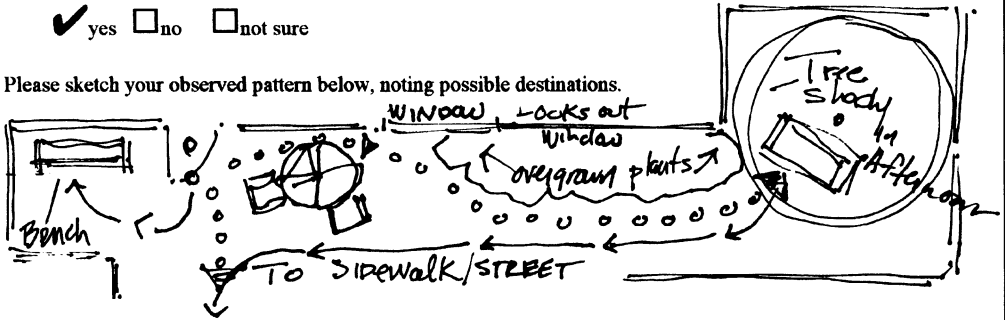 yes no not sure
Please sketch your observed pattern below, noting possible destinations.
WINDOW Looks out
Window
Tree
Shady
in
Afternoon
overgrown plants
Bench
TO SIDEWALK/STREET